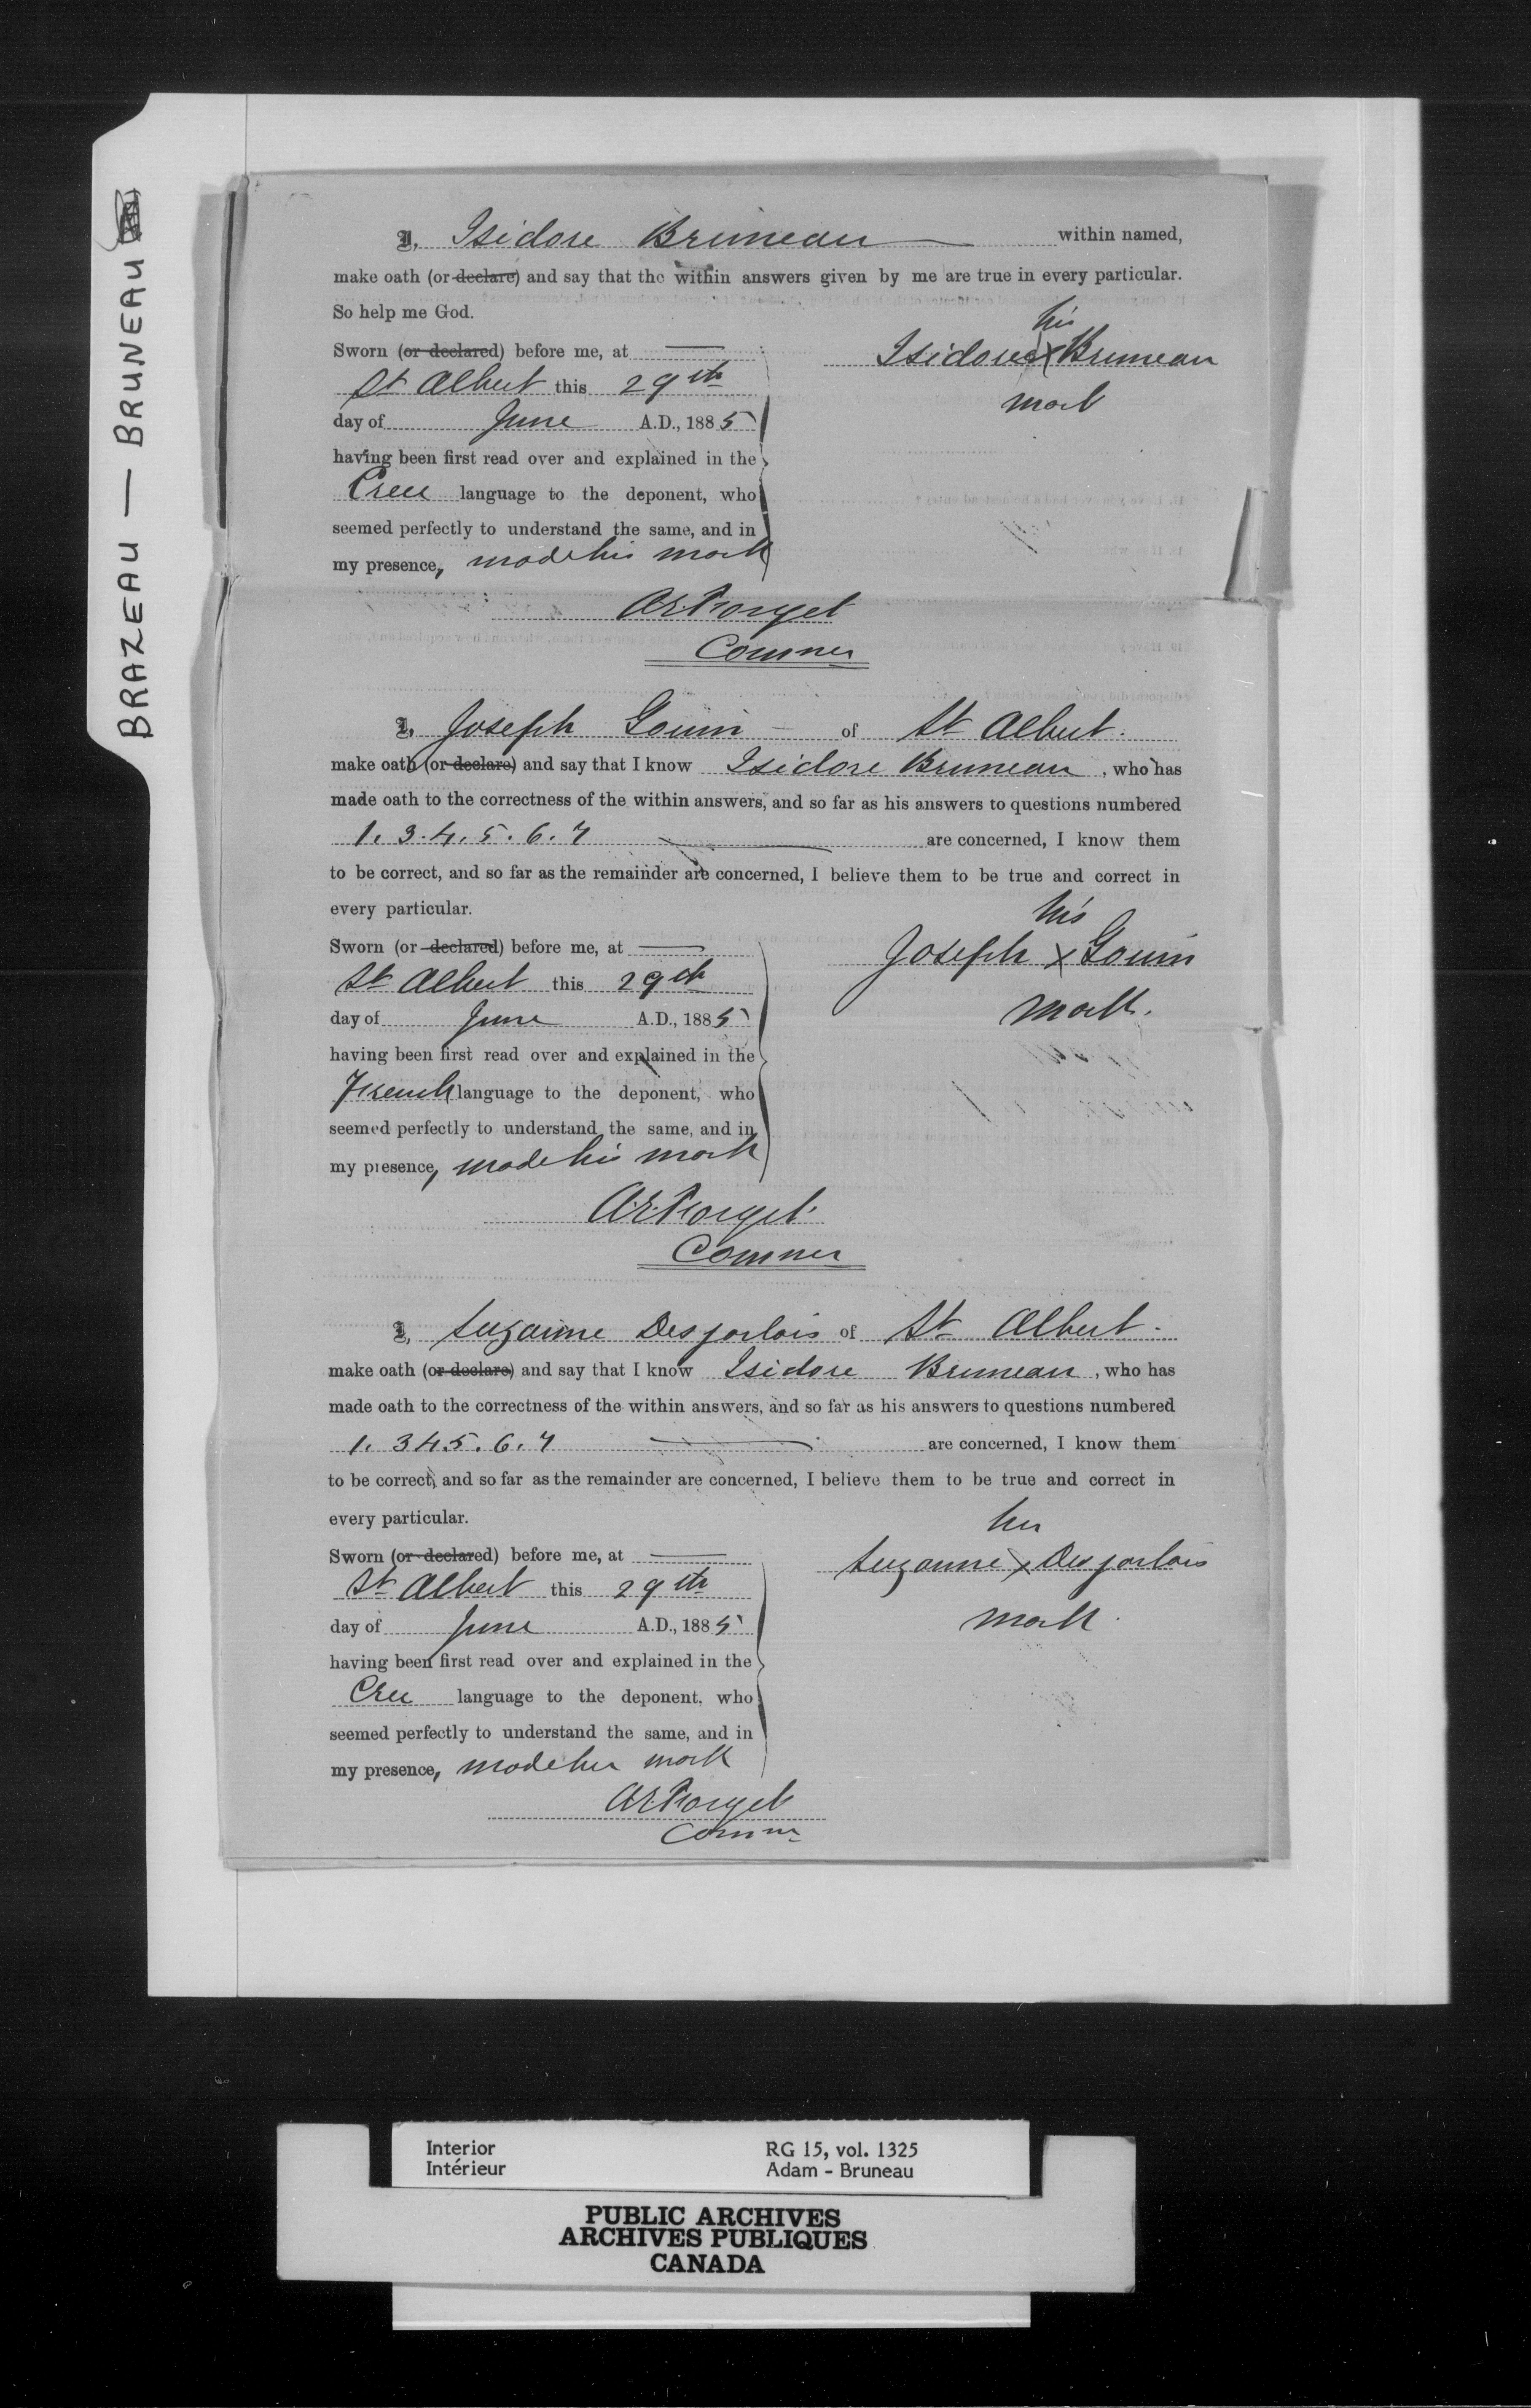 BRAZEAU — BRUNEAU
I, Isidore Bruneau — within named,
make oath (or declare) and say that the within answers given by me are true in every particular.
So help me God.
Sworn (or declared) before me, at —
St Albert this 29th
day of June A.D., 1885
having been first read over and explained in the
Cree language to the deponent, who
seemed perfectly to understand the same, and in
my presence, made his mark
his
Isidore X Bruneau
mark
A.E. Forget
Commer
I, Joseph Gouin — of St Albert.
make oath (or declare) and say that I know Isidore Bruneau, who has
made oath to the correctness of the within answers, and so far as his answers to questions numbered
1. 3. 4. 5. 6. 7 — are concerned, I know them
to be correct, and so far as the remainder are concerned, I believe them to be true and correct in
every particular.
Sworn (or declared) before me, at —
St Albert this 29th
day of June A.D., 1885
having been first read over and explained in the
French language to the deponent, who
seemed perfectly to understand the same, and in
my presence, made his mark
his
Joseph X Gouin
mark.
A.E. Forget.
Commer
I, Suzanne Desjarlais of St Albert.
make oath (or declare) and say that I know Isidore Bruneau, who has
made oath to the correctness of the within answers, and so far as his answers to questions numbered
1. 3 4 5. 6. 7 — are concerned, I know them
to be correct, and so far as the remainder are concerned, I believe them to be true and correct in
every particular.
Sworn (or declared) before me, at —
St Albert this 29th
day of June A.D., 1885
having been first read over and explained in the
Cree language to the deponent, who
seemed perfectly to understand the same, and in
my presence, made her mark
her
Suzanne X Desjarlais
mark.
A.E. Forget
Commr
Interior RG 15, vol. 1325
Intérieur Adam - Bruneau
PUBLIC ARCHIVES
ARCHIVES PUBLIQUES
CANADA